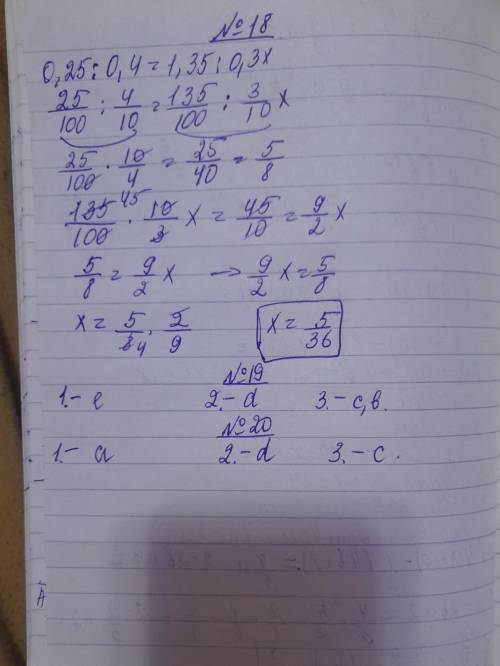 №18
0,25 : 0,4 = 1,35 : 0,3x
25/100 : 4/10 = 135/100 : 3/10 x
25/100 · 10/4 = 25/40 = 5/8
135 45/100 · 10/3 x = 45/10 = 9/2 x
5/8 = 9/2 x → 9/2 x = 5/8
x = 5/8 4 · 2/9 x = 5/36
№19
1.- e 2.- d 3.- c, в.
№20
1.- a 2.- d 3.- c.
A